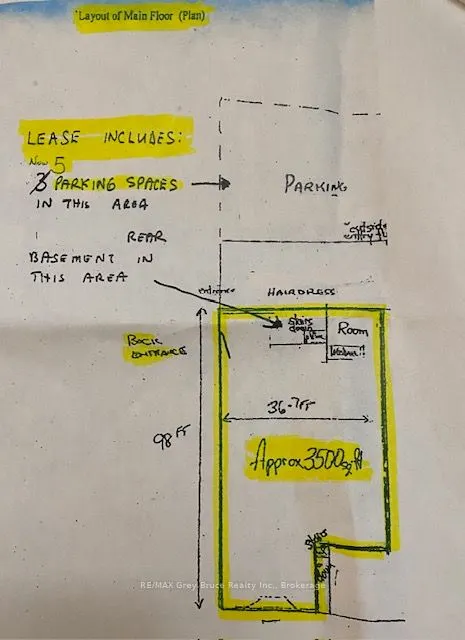 Layout of Main Floor (Plan)
LEASE INCLUDES:
Now 5
3 PARKING SPACES
IN THIS AREA
PARKING
REAR
BASEMENT IN
THIS AREA
entrance
HAIRDRESS
stairs
down
Room
BACK
ENTRANCE
36-7FT
98 FT
Approx 3500 sq ft
RE/MAX Grey Bruce Realty Inc., Brokerage